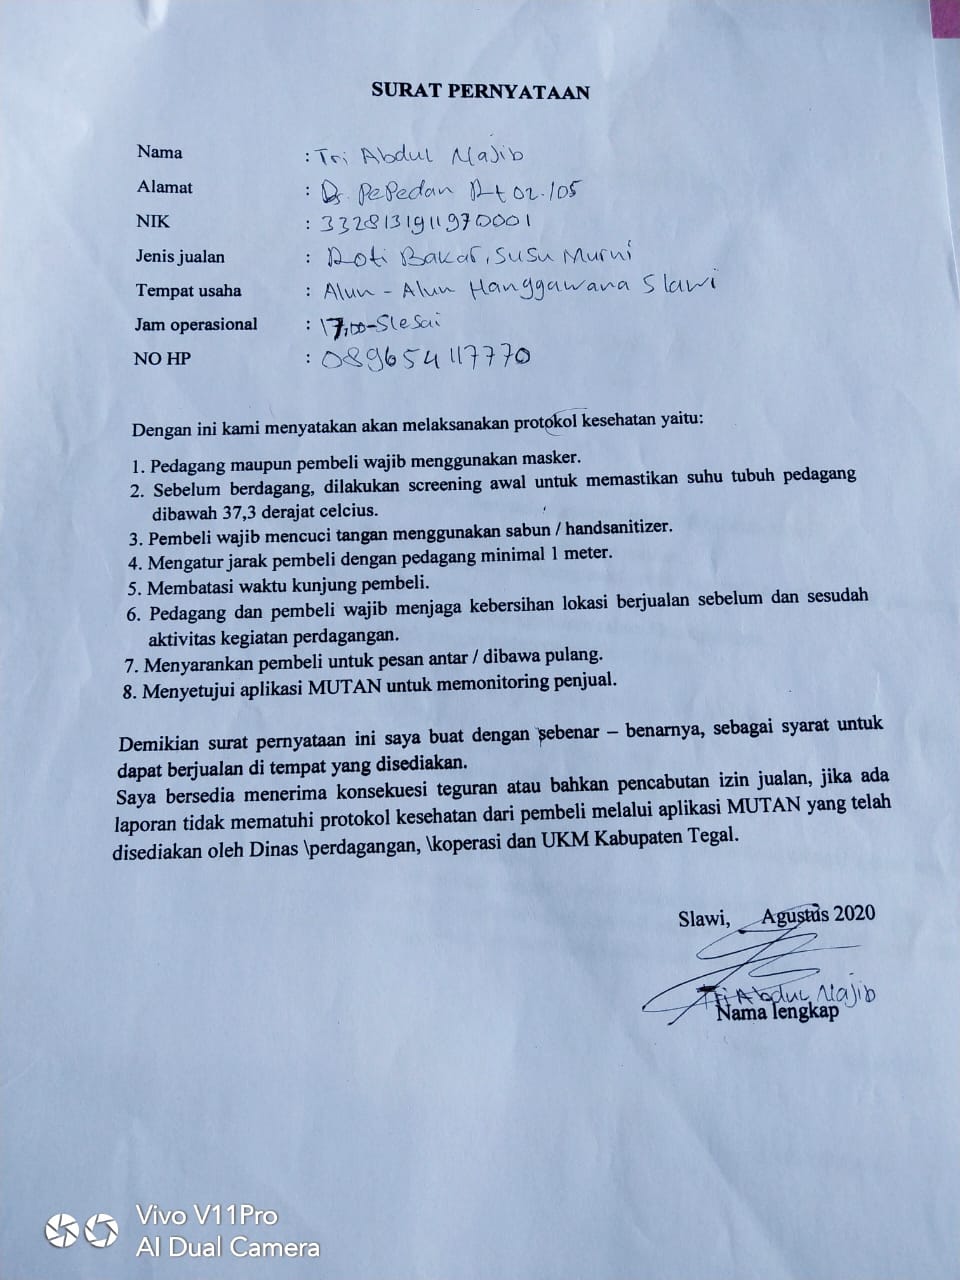 SURAT PERNYATAAN
Nama : Tri Abdul Majib
Alamat : Ds. Pepedan Rt 02./05
NIK : 3328131911970001
Jenis jualan : Roti Bakar, Susu Murni
Tempat usaha : Alun - Alun Hanggawana Slawi
Jam operasional : 17,00-Slesai
NO HP : 089654117770
Dengan ini kami menyatakan akan melaksanakan protokol kesehatan yaitu:
1. Pedagang maupun pembeli wajib menggunakan masker.
2. Sebelum berdagang, dilakukan screening awal untuk memastikan suhu tubuh pedagang
dibawah 37,3 derajat celcius.
3. Pembeli wajib mencuci tangan menggunakan sabun / handsanitizer.
4. Mengatur jarak pembeli dengan pedagang minimal 1 meter.
5. Membatasi waktu kunjung pembeli.
6. Pedagang dan pembeli wajib menjaga kebersihan lokasi berjualan sebelum dan sesudah
aktivitas kegiatan perdagangan.
7. Menyarankan pembeli untuk pesan antar / dibawa pulang.
8. Menyetujui aplikasi MUTAN untuk memonitoring penjual.
Demikian surat pernyataan ini saya buat dengan sebenar – benarnya, sebagai syarat untuk
dapat berjualan di tempat yang disediakan.
Saya bersedia menerima konsekuesi teguran atau bahkan pencabutan izin jualan, jika ada
laporan tidak mematuhi protokol kesehatan dari pembeli melalui aplikasi MUTAN yang telah
disediakan oleh Dinas \perdagangan, \koperasi dan UKM Kabupaten Tegal.
Slawi, Agustus 2020
Tri Abdul Majib
Nama lengkap
Vivo V11Pro
AI Dual Camera